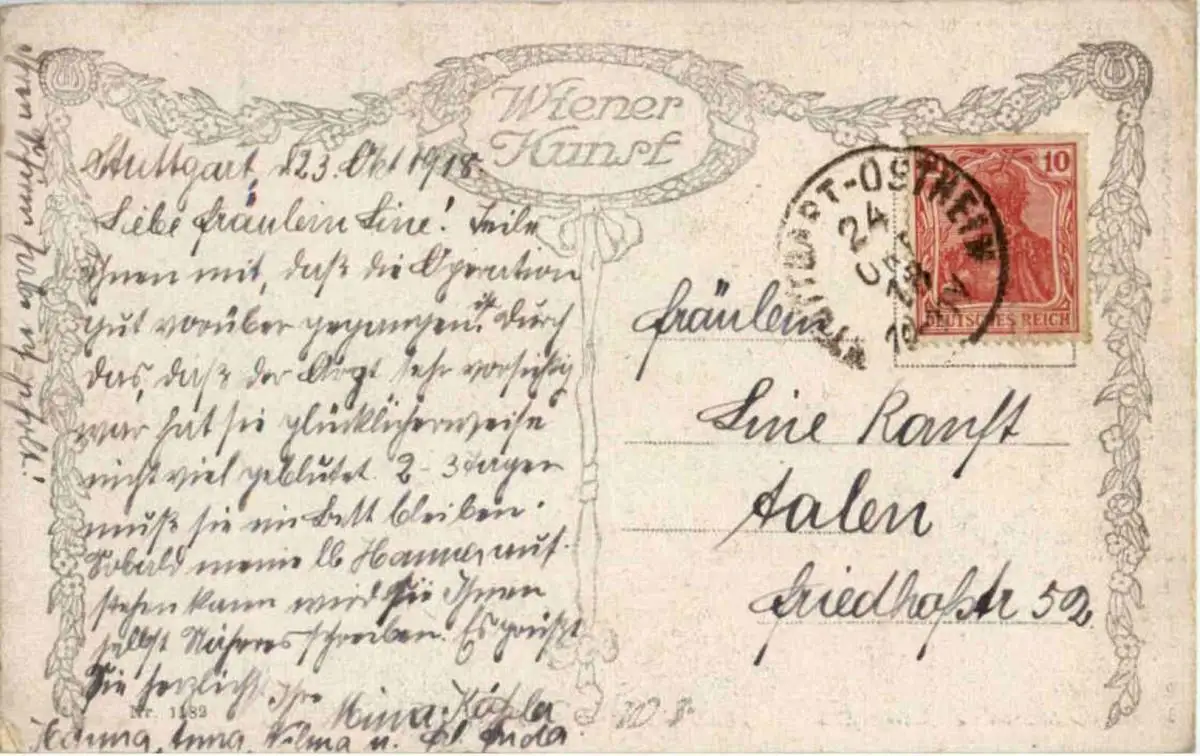 Wiener
Kunst
Stuttgart, d 23. Okt 1918.
Liebe Fräulein Line! Teile
Ihnen mit, daß die Operation
gut vorüber gegangen ist. Durch
das, daß der Arzt sehr vorsichtig
war hat sie glücklicherweise
nicht viel geblutet. 2-3 Tagen
muß sie im Bett bleiben.
Sobald meine lb Hanna auf-
stehen kann wird sie Ihnen
selbst Näheres schreiben. Es grüßt
Sie herzlichst Ihre
Mina
Hanna, Anna, Wilma u.
Nr. 1182
STUTTGART-OSTHEIM
24
OKT
18
10
DEUTSCHES REICH
Fräulein
Line Ranft
Aalen
Friedhofstr 52